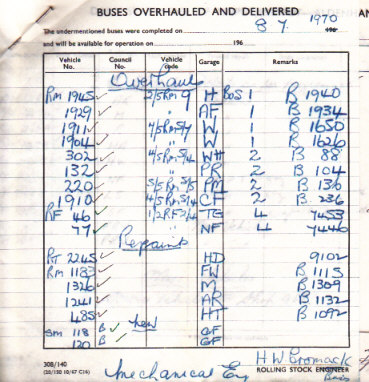 BUSES OVERHAULED AND DELIVERED
The undermentioned buses were completed on 8 7. 1970
and will be available for operation on 196
Vehicle No. Council No. Vehicle code Garage Remarks
Overhauls
Rm 1945 ✓ 2/5 Rm 9 H Bos 1 B 1940
1929 ✓ AF 1 B 1934
1911 ✓ 4/5 Rm 5/7 W 1 B 1650
1904 ✓ " W 1 B 1626
302 ✓ 4/5 Rm 5/4 WH 2 B 88
132 ✓ " PR 2 B 104
220 ✓ 5/5 Rm 5/5 PM 2 B 136
1910 ✓ 4/5 Rm 5/4 CF 2 B 236
RF 46 ✓ 1/2 RF 2/4 TG 4 7453
77 ✓ " NF 4 7446
Repaints
RT 2245 ✓ HD 9102
Rm 1183 ✓ FW B 1115
1326 ✓ M B 1309
1241 ✓ AR B 1132
485 ✓ HT B 1092
Sm 118 B ✓ new CF
120 B ✓ CF
308/140
(20/150 10/67 C16)
Mechanical Eng
H W Cromack
ROLLING STOCK ENGINEER